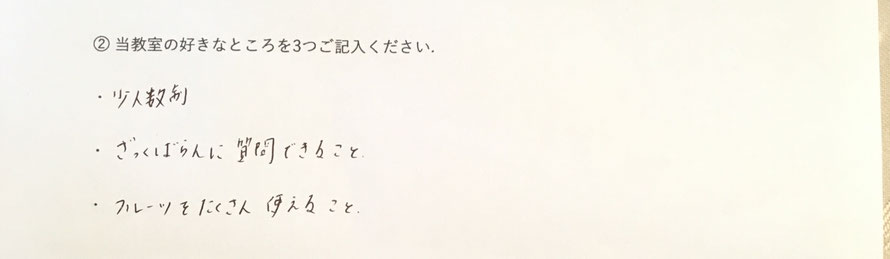 ② 当教室の好きなところを3つご記入ください.
・少人数制
・ざっくばらんに質問できること.
・フルーツをたくさん使えること.